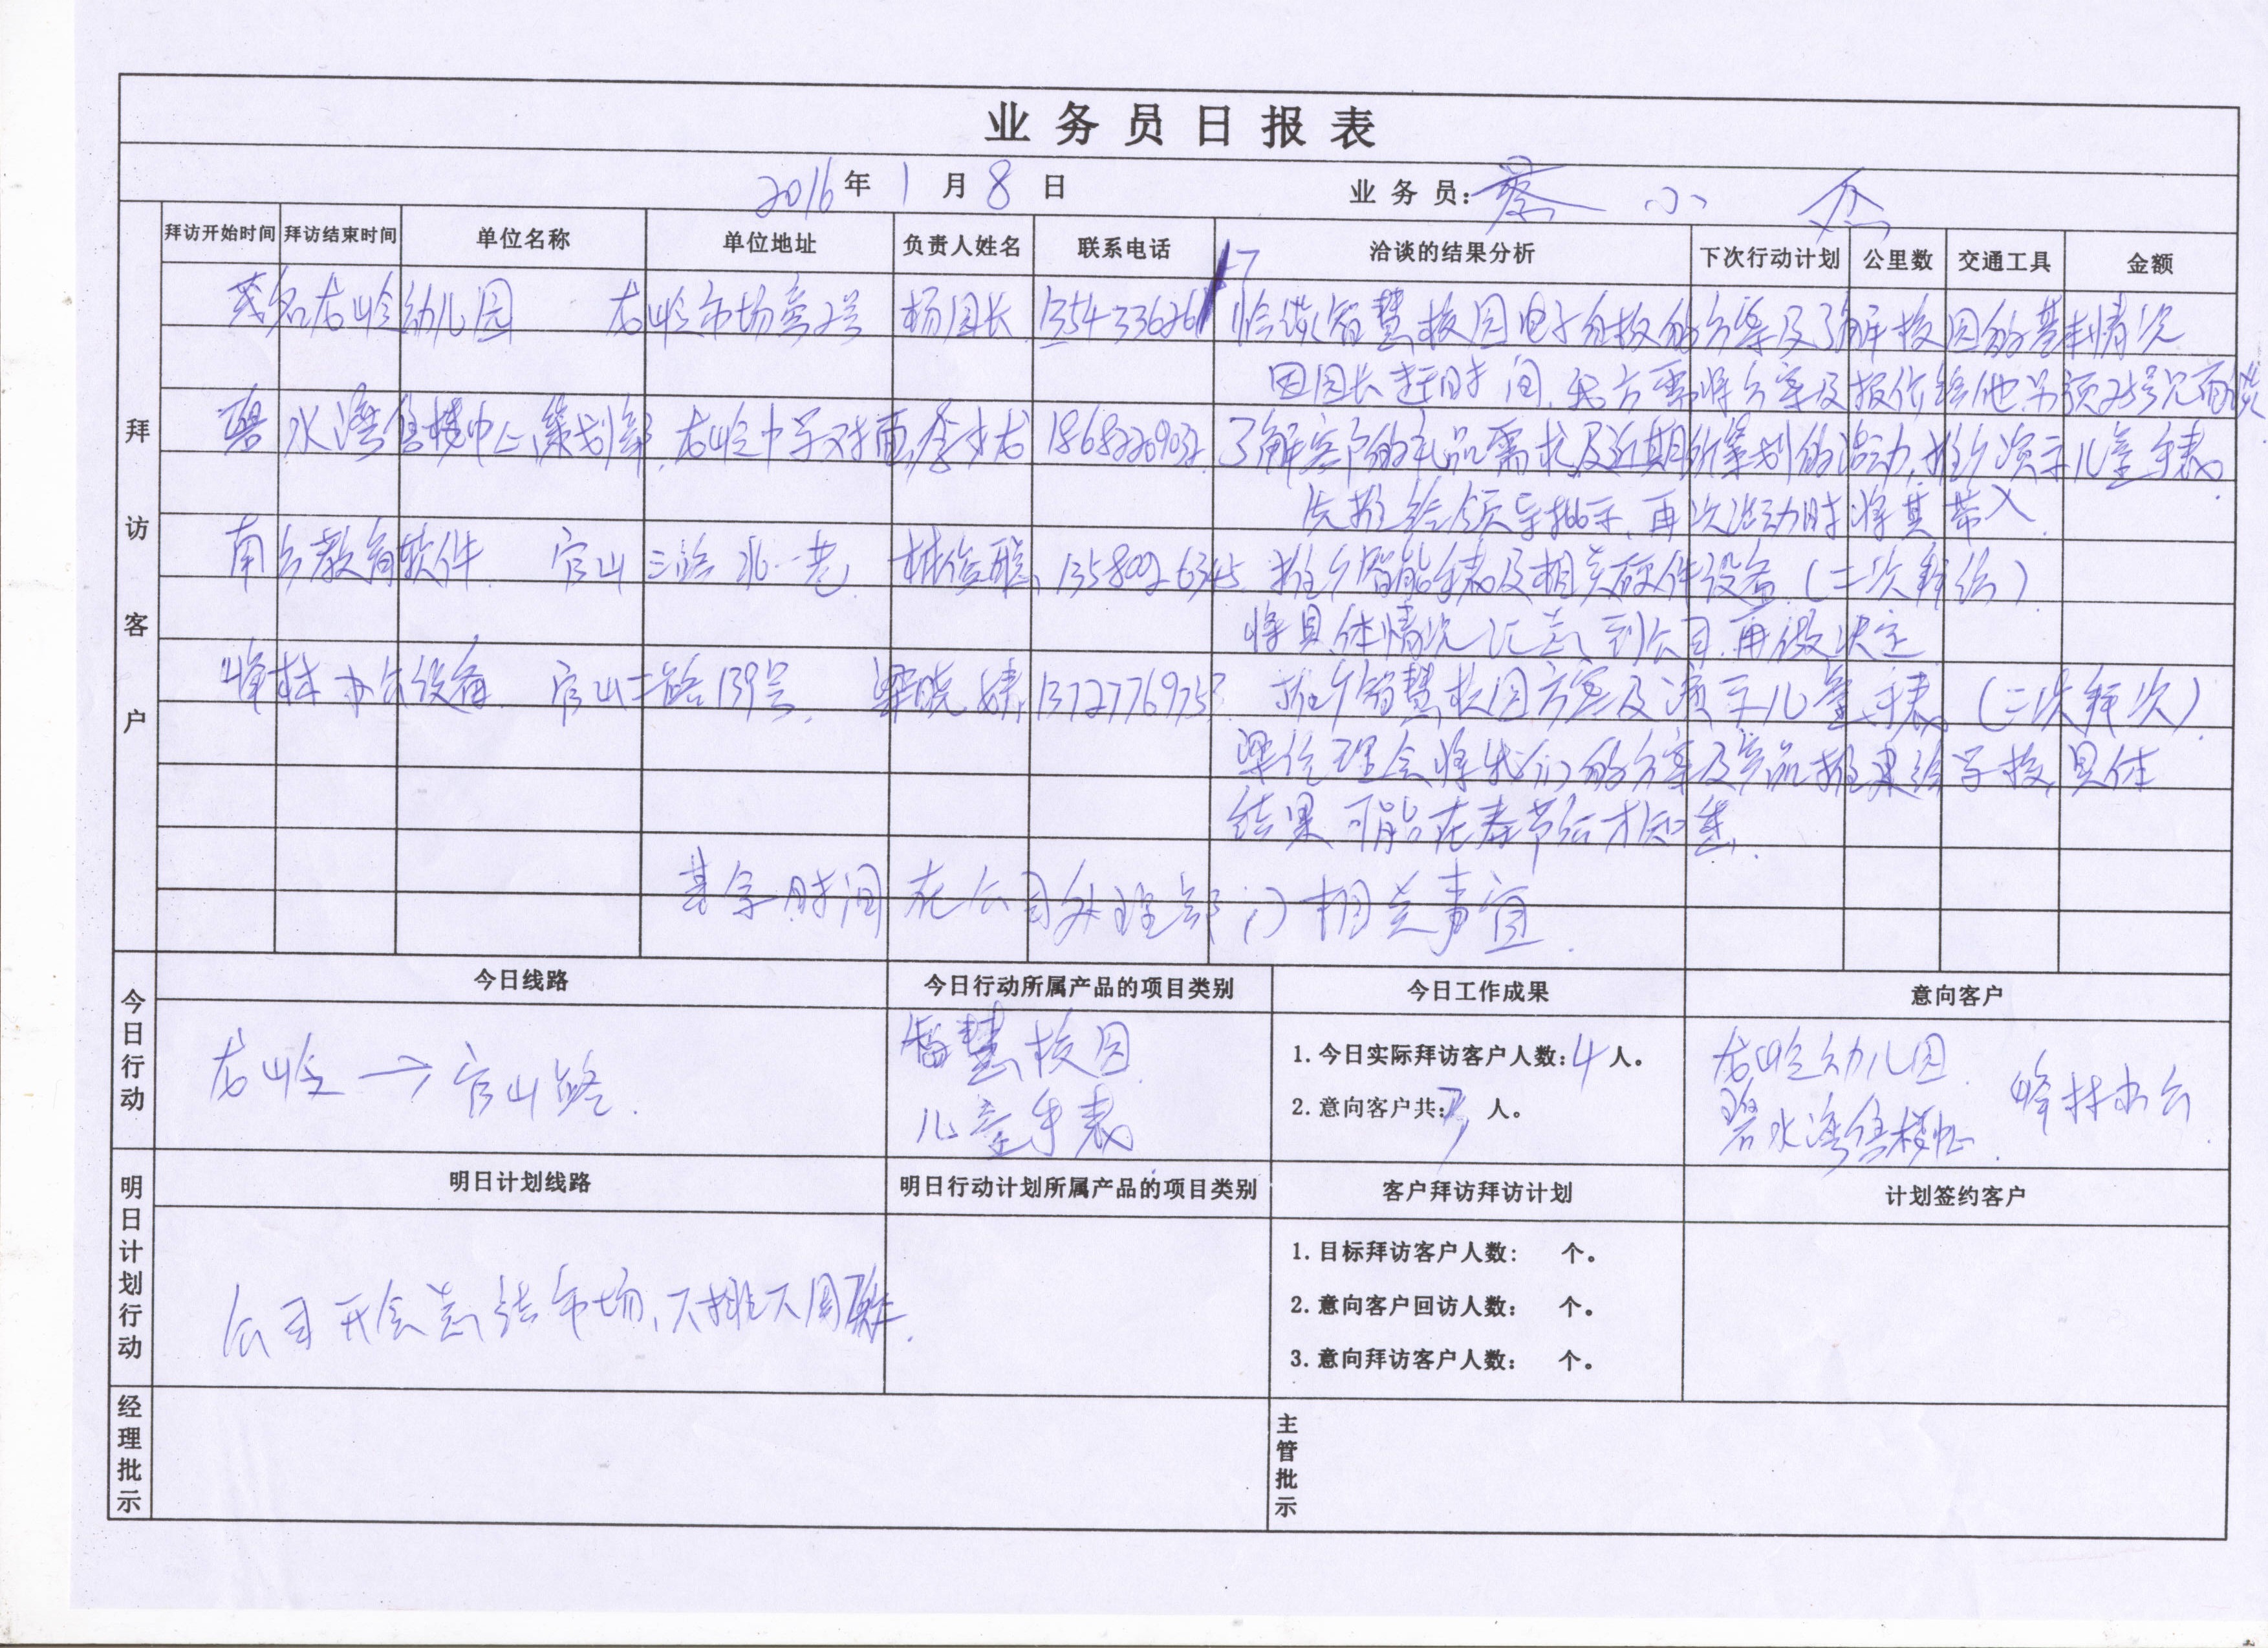 业务员日报表
2016年1月8日 业务员:蔡小
拜访开始时间 拜访结束时间 单位名称 单位地址 负责人姓名 联系电话 洽谈的结果分析 下次行动计划 公里数 交通工具 金额
拜访客户
茂名右岭幼儿园 右岭市场旁2号 杨园长 洽谈智慧校园电子白板的方案及了解校园的基本情况
因园长赶时间,我方需将方案及报价给他
碧水湾售楼中心策划部 右岭中学对面 李 1868226903 了解客户的礼品需求及近期所策划的活动,推介演示儿童手表.
先推给领导批示,再次活动时将其带入.
南方教育软件. 官山三路北一巷, 林俊 13580026345 推介智能手表及相关硬件设备.(二次拜访)
将具体情况汇总到公司,再做决定
峰林办公设备. 官山二路139号. 梁晓婧, 1372776975 推介智慧校园方案及演示儿童手表.(二次拜访)
梁经理会将我们的方案及产品推荐给学校,具体
结果可能在春节后才知悉.
其余时间在公司处理部门相关事宜.
今日行动
今日线路 今日行动所属产品的项目类别 今日工作成果 意向客户
右岭→官山路.
智慧校园
儿童手表
1.今日实际拜访客户人数:4人。
2.意向客户共:3人。
右岭幼儿园. 峰林办公.
碧水湾售楼中心.
明日计划行动
明日计划线路 明日行动计划所属产品的项目类别 客户拜访拜访计划 计划签约客户
公司开会总结市场、
1.目标拜访客户人数: 个。
2.意向客户回访人数: 个。
3.意向拜访客户人数: 个。
经理批示
主管批示